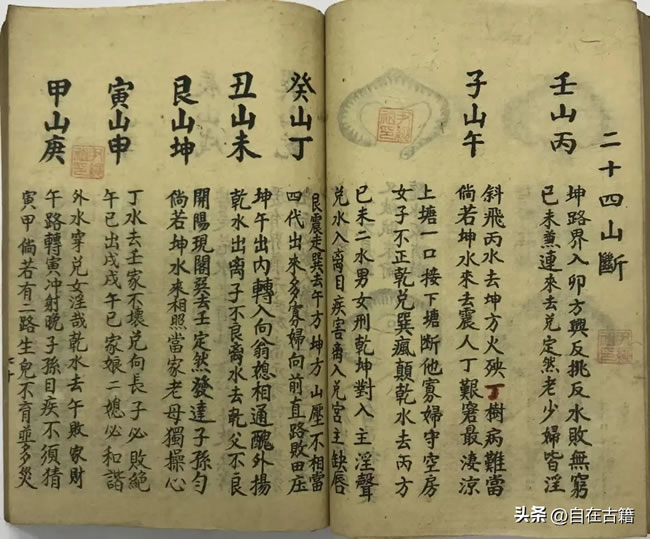 二十四山斷
壬山丙
坤路界入卯方興反挑反水敗無窮
已未兼連來去兑定然老少婦皆淫
子山午
斜飛丙水去坤方火殃丁樹病難當
倘若坤水來去震人丁艱窘最淒涼
上塘一口接下塘斷他寡婦守空房
女子不正乾兑巽瘋顛乾水去丙方
已未二水男女刑乾坤對入主淫聲
兑水入离目疾害离入兑宮主缺唇
癸山丁
艮震走巽去午方坤方山壓不相當
四代出來多寡婦向前直路敗田庄
丑山未
坤午出内轉入向翁媳相通醜外揚
乾水出离子不良离水去乾父不良
艮山坤
開陽現閣癸去壬定然發達子孫勻
倘若坤水來相照當家老母獨操心
寅山申
丁水去壬家不壞兑向長子必敗絕
午已出戌戌午已家娘二媳必和諧
甲山庚
外水穿兑女淫哉乾水去午敗家財
午路轉寅冲射晚子孫目疾不須猜
寅甲倘若有二路生兒不育並多災
头条 @自在古籍